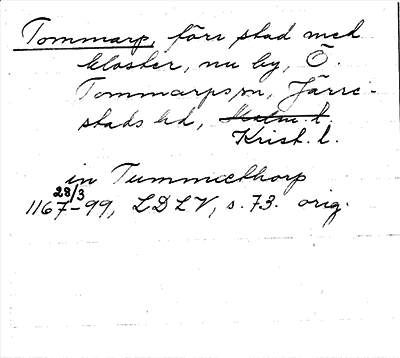 Tommarp, förr stad med
kloster, nu by, Ö.
Tommarps sn, Järre-
stads hd, Malm. l.
Krist. l.
in Tummæthorp
28/3
1167-99, LDLV, s. 73. orig.